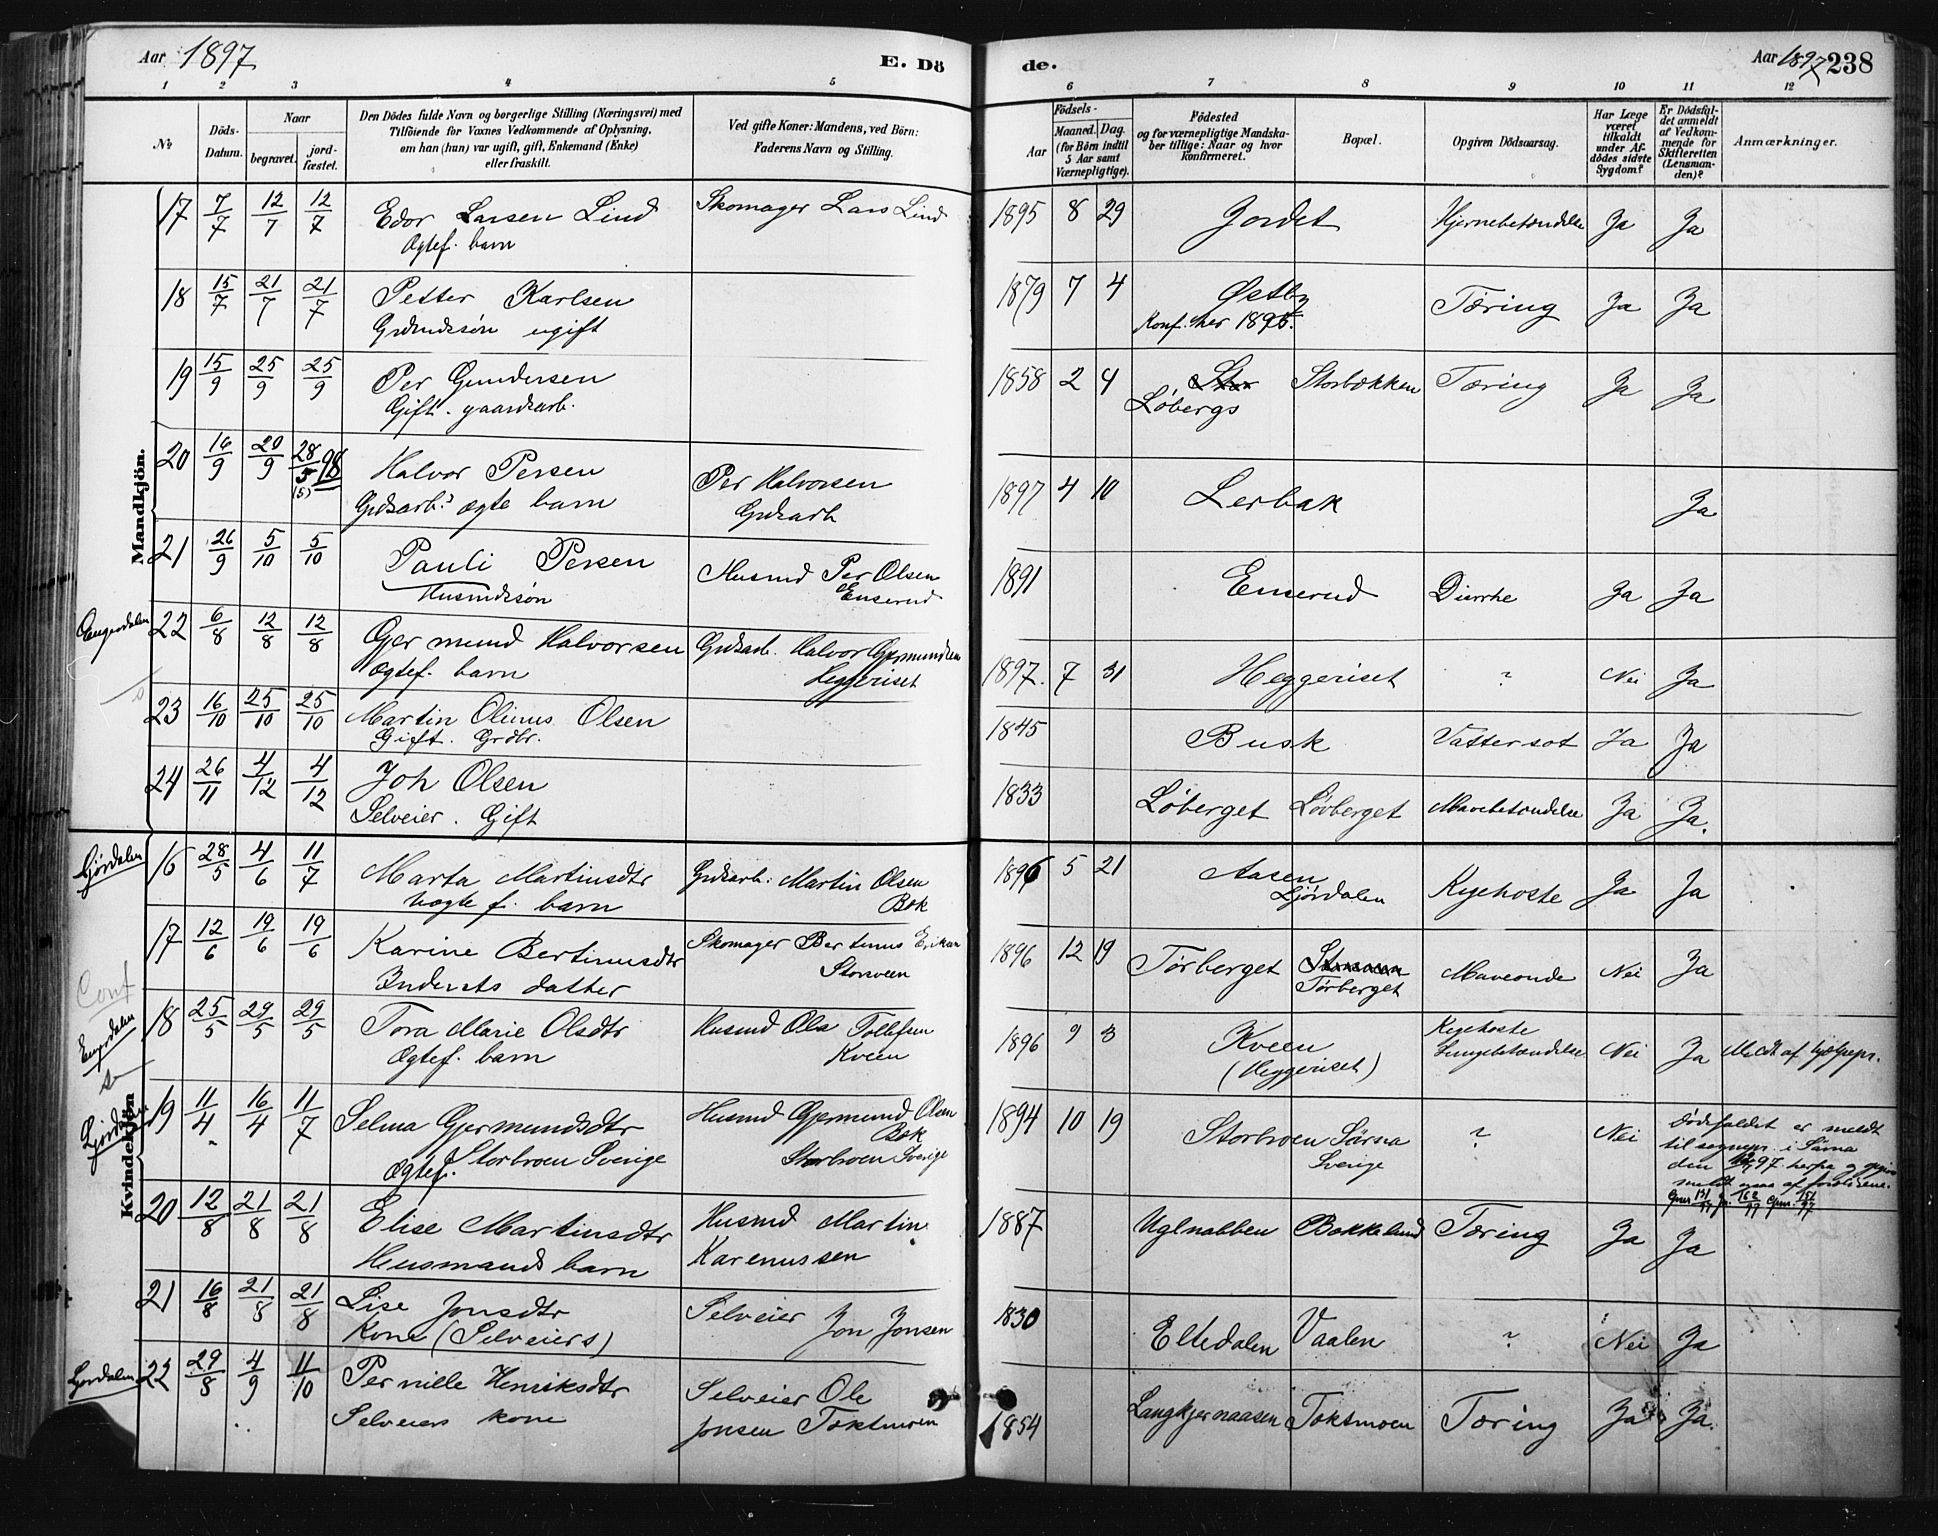 Aar 1897 E. Dö de. Aar 1897 238
1 2 3 4 5 6 7 8 9 10 11 12
№ Döds-Datum. Naar begravet. jord-fæstet. Den Dödes fulde Navn og borgerlige Stilling (Næringsvei) med Tilföiende for Voxnes Vedkommende af Oplysning, om han (hun) var ugift, gift, Enkemand (Enke) eller fraskilt. Ved gifte Koner: Mandens, ved Börn: Faderens Navn og Stilling. Födsels- Aar Maaned. Dag. (for Börn indtil 5 Aar samt Værnepligtige). Födested og for værnepligtige Mandska-ber tillige: Naar og hvor konfirmeret. Bopæl. Opgiven Dödsaarsag. Har Læge været tilkaldt under Af-dödes sidste Sygdom? Er Dödsfal-det anmeldt af Vedkom-mende for Skifteretten (Lensman-den)? Anmærkninger.
Mandkjön.
17 7/7 12/7 12/7 Edor Larsen Lind Skomager Lars Lind 1895 8 29 Jordet Hjernebetændelse Ja Ja
Ægtef. barn
18 15/7 21/7 21/7 Petter Karlsen 1879 7 4 Østby Tæring Ja Ja
Grdmdssøn ugift Konf. her 1895.
19 15/9 25/9 25/9 Per Gundersen 1858 2 4 Stor Storbækken Tæring Ja Ja
Gift. gaardsarb. Løbergs
20 16/9 20/9 28/5 98 Halvor Persen Per Halvorsen 1897 4 10 Lerbak Ja
(5) Grdsarb's ægte barn Grdsarb
21 26/9 5/10 5/10 Pauli Persen Husmd Per Olsen 1891 Enserud Diærrhe Ja Ja
Husmdssøn Enserud
Engerdalen 22 6/8 12/8 12/8 Gjermund Halvorsen Grdsarb. Halvor Gjermundsen 1897. 7 31 Heggeriset ? Nei Ja
Ægtef. barn Heggeriset
23 16/10 25/10 25/10 Martin Olinus Olsen 1845 Busk Vattersot Ja Ja
Gift. Grdbr.
24 26/11 4/12 4/12 Joh Olsen 1833 Løberget Løvberget Mavebetændelse Ja Ja.
Selveier. Gift
Kvindekjön
Ljørdalen 16 28/5 4/6 11/7 Marta Martinsdtr Grdsarb: Martin Olsen 1896 5 21 Aasen Kigehoste Ja Ja
Uægte f. barn Bak Ljørdalen
17 12/6 19/6 19/6 Karine Bertinusdtr Skomager Bertinus Eriksen 1896 12 19 Tørberget Maveonde Nei Ja
Indersts datter Storsveen Tørberget
Cont
Engerdalen 18 25/5 29/5 29/5 Tora Marie Olsdtr Husmd Ola Tollefsen 1896 9 3 Kveen Kigehoste Nei Ja Meldt af hjælpepr.
Ægtef. barn Kveen (Heggeriset) Lungebetændelse
Ljørdalen 19 11/4 16/4 11/7 Selma Gjermundsdtr Husmd Gjermund Olsen 1894 10 19 Storbroen Särna ? Nei Dødsfaldet er meldt
Ægtef. Storbroen Sverige Bak Sverige til sognepr. i Särna
Storbroen Sverige
20 12/8 21/8 21/8 Elise Martinsdtr Husmd Martin 1887 Uglnabben Bakkelund Tæring Ja Ja
Husmands barn Karenussen
21 16/8 21/8 21/8 Lise Jonsdtr Selveier Jon Jonsen 1830 Eltedalen Vaalen ? Nei Ja
Kone (Selveiers)
Ljørdalen 22 29/8 4/9 11/10 Pernille Henriksdtr Selveier Ole 1854 Langkjernaasen Toktmoen Tæring Ja Ja.
Selveiers kone Jonsen Toktmoen